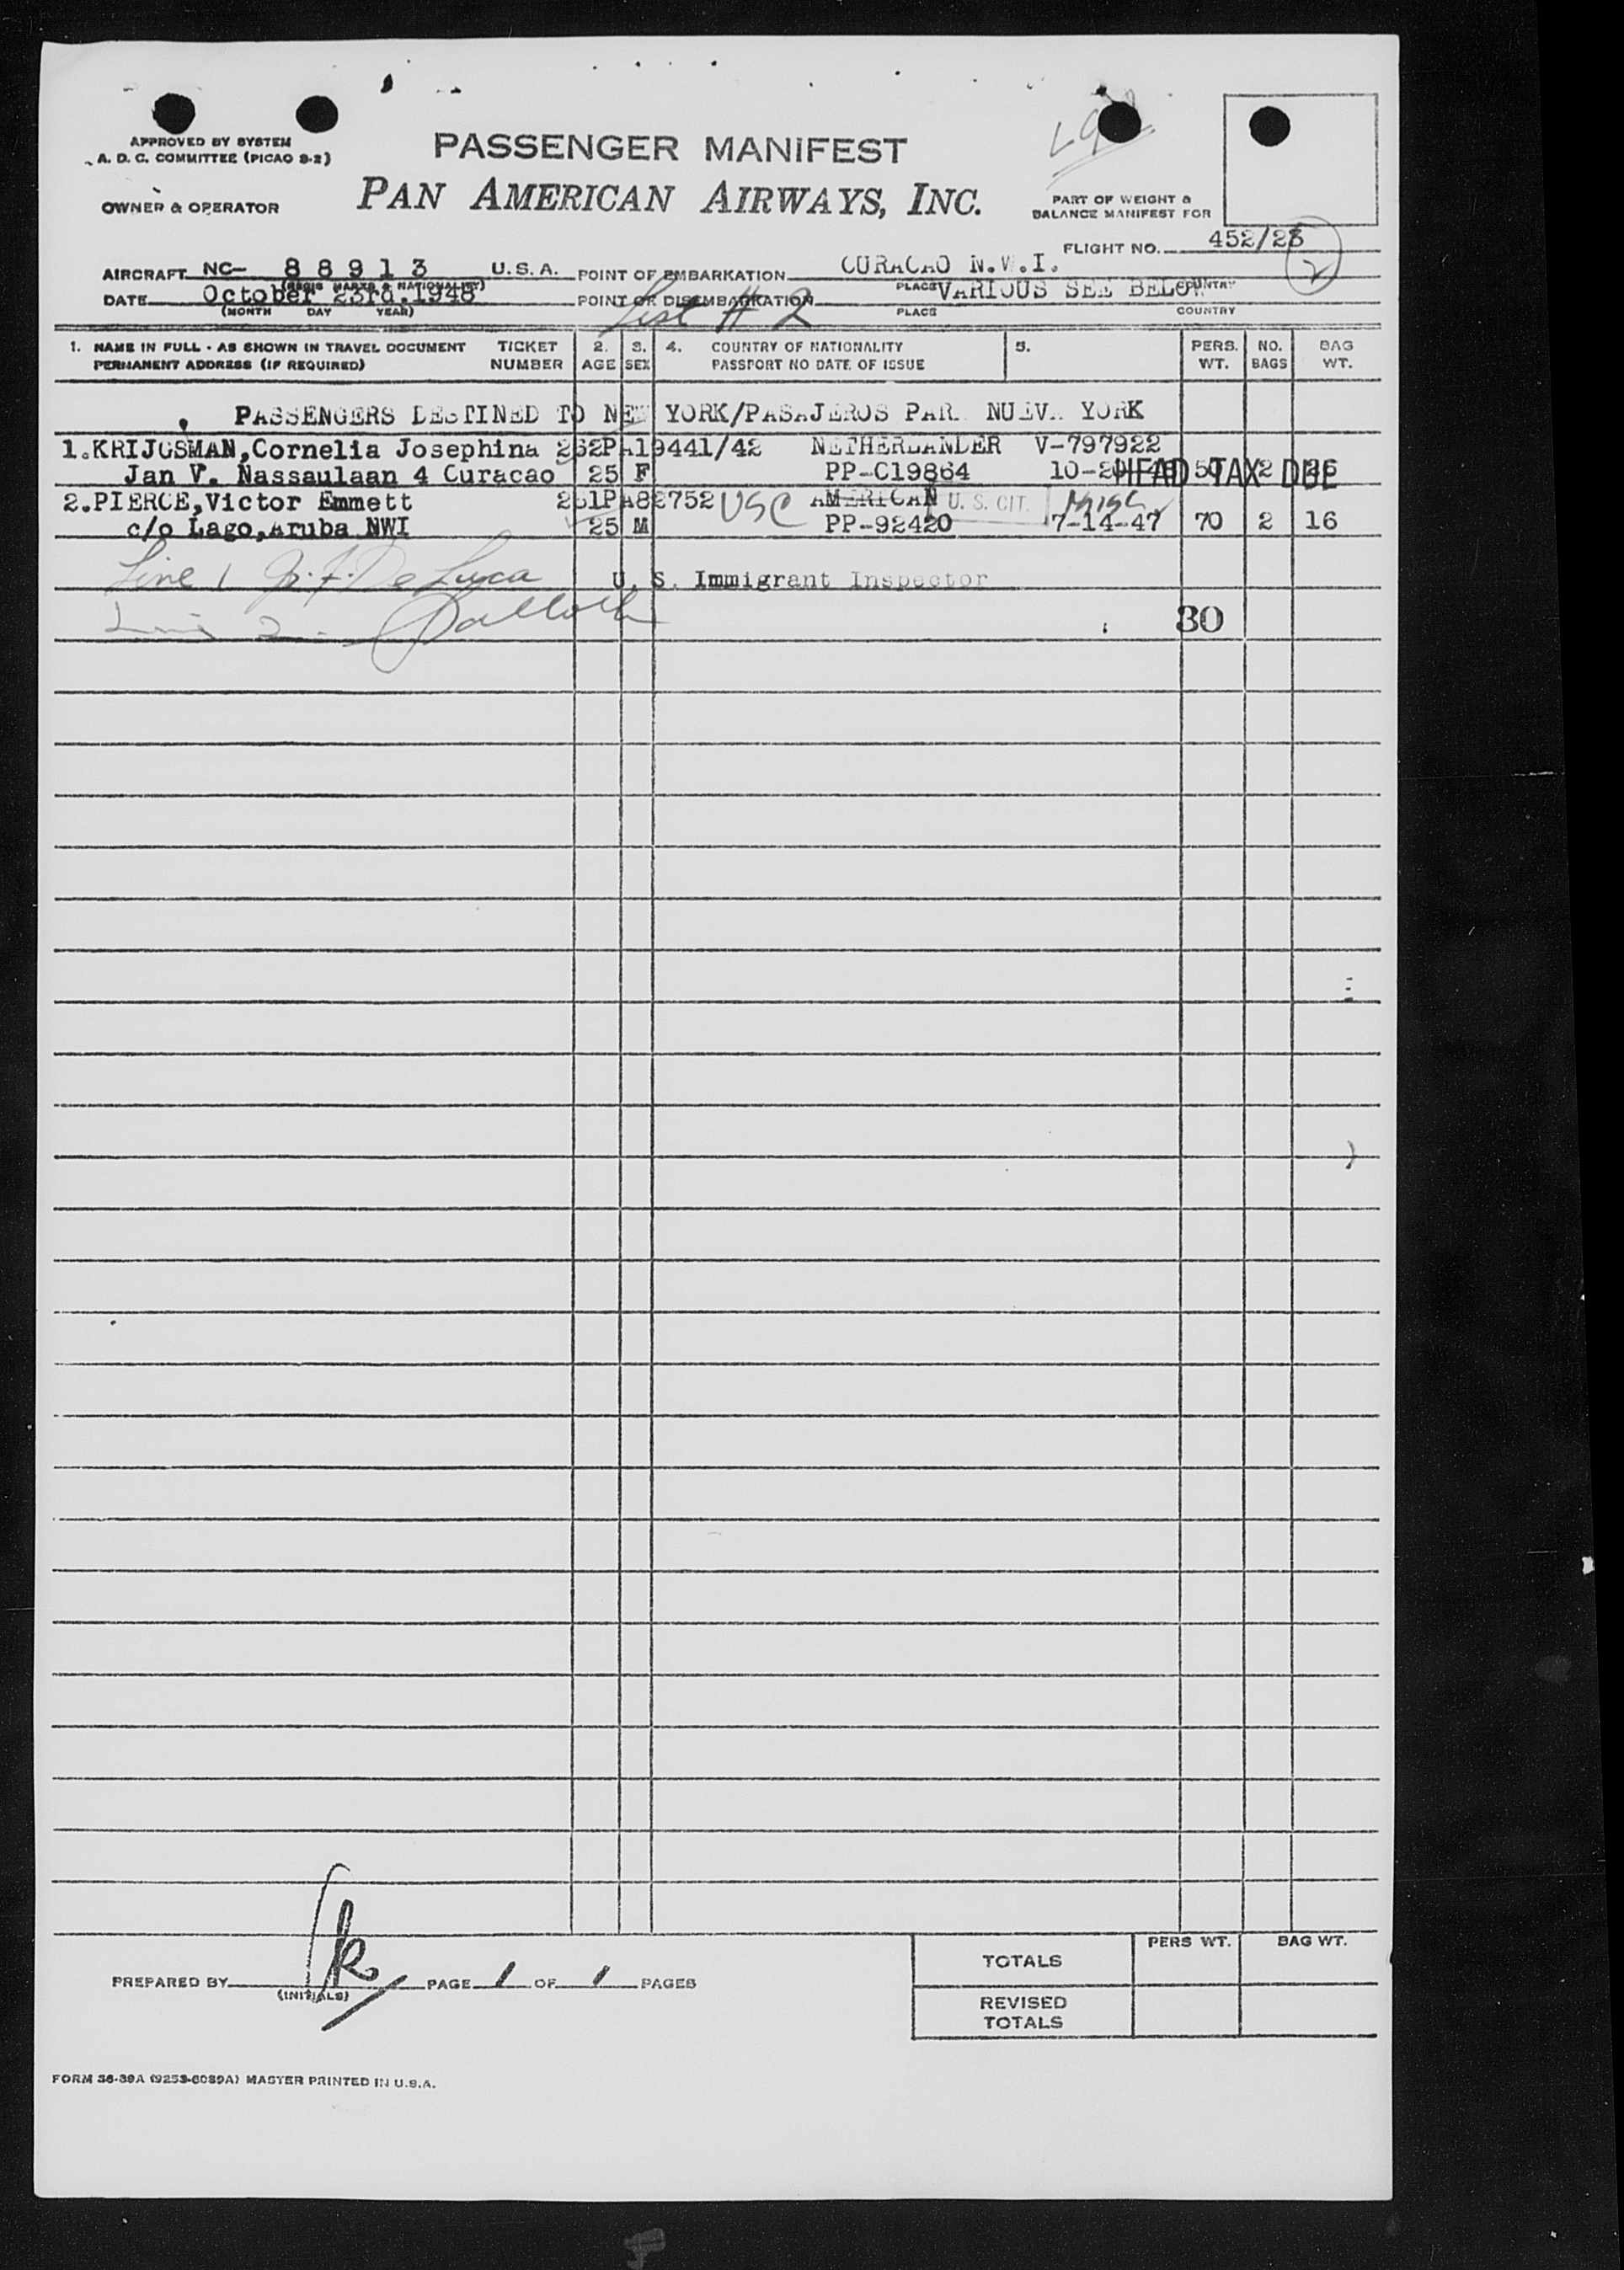 APPROVED BY SYSTEM
A. D. C. COMMITTEE (PICAO 9-2)
PASSENGER MANIFEST
OWNER & OPERATOR
PAN AMERICAN AIRWAYS, INC.
PART OF WEIGHT &
BALANCE MANIFEST FOR
FLIGHT NO. 452/23
2
AIRCRAFT NC- 88913 U.S.A. POINT OF EMBARKATION CURACAO N.W.I.
(REGIS MARKS & NATIONALITY) PLACE COUNTRY
DATE October 23rd.1948 POINT OF DISEMBARKATION VARIOUS SEE BELOW
(MONTH DAY YEAR) PLACE COUNTRY
List # 2
1. NAME IN FULL - AS SHOWN IN TRAVEL DOCUMENT TICKET 2. 3. 4. COUNTRY OF NATIONALITY 5. PERS. NO. BAG
PERMANENT ADDRESS (IF REQUIRED) NUMBER AGE SEX PASSPORT NO DATE OF ISSUE WT. BAGS WT.
PASSENGERS DESTINED TO NEW YORK/PASAJEROS PARA NUEVA YORK
1.KRIJGSMAN,Cornelia Josephina 262PA19441/42 NETHERLANDER V-797922
Jan V. Nassaulaan 4 Curacao 25 F PP-C19864 HEAD TAX DUE
2.PIERCE,Victor Emmett 261PA82752 USC AMERICAN U. S. CIT. Misc
c/o Lago,Aruba NWI 25 M PP-92420 7-14-47 70 2 16
Line 1 De Luca U. S. Immigrant Inspector
30
PREPARED BY (INITIALS) PAGE 1 OF 1 PAGES
PERS WT. BAG WT.
TOTALS
REVISED
TOTALS
FORM 36-39A (9253-6039A) MASTER PRINTED IN U.S.A.